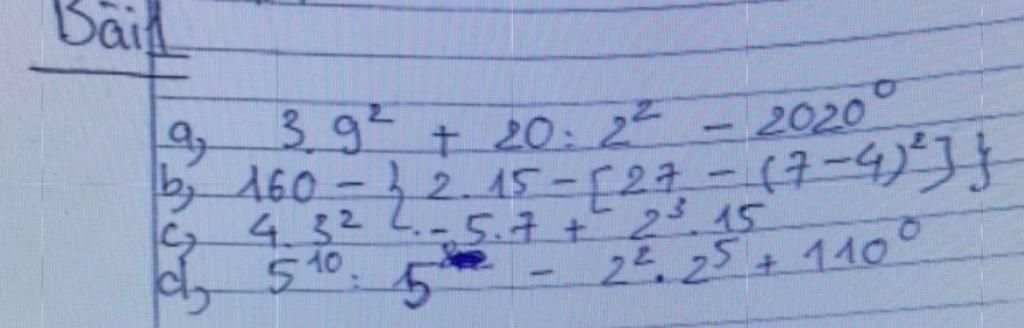 Bài 1
a, 3.9² + 20 : 2² - 2020⁰
b, 160 - { 2.15 - [27 - (7-4)²] }
c, 4.3² - 5.7 + 2³.15
d, 5¹⁰ : 5 - 2².2⁵ + 110⁰